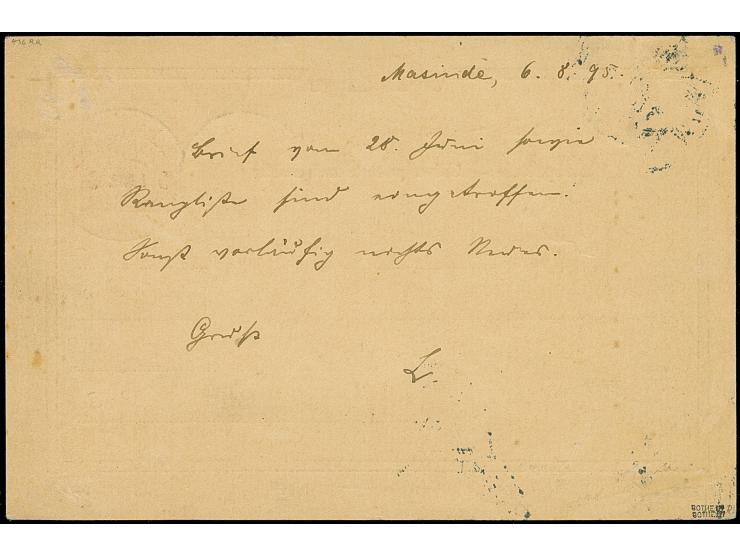 Masinde, 6. 8. 95.
Brief vom 28. Juni sowie
Rangliste sind eingetroffen.
Sonst vorläufig nichts Neues.
Gruß
L.
BOTHE
BOTHE